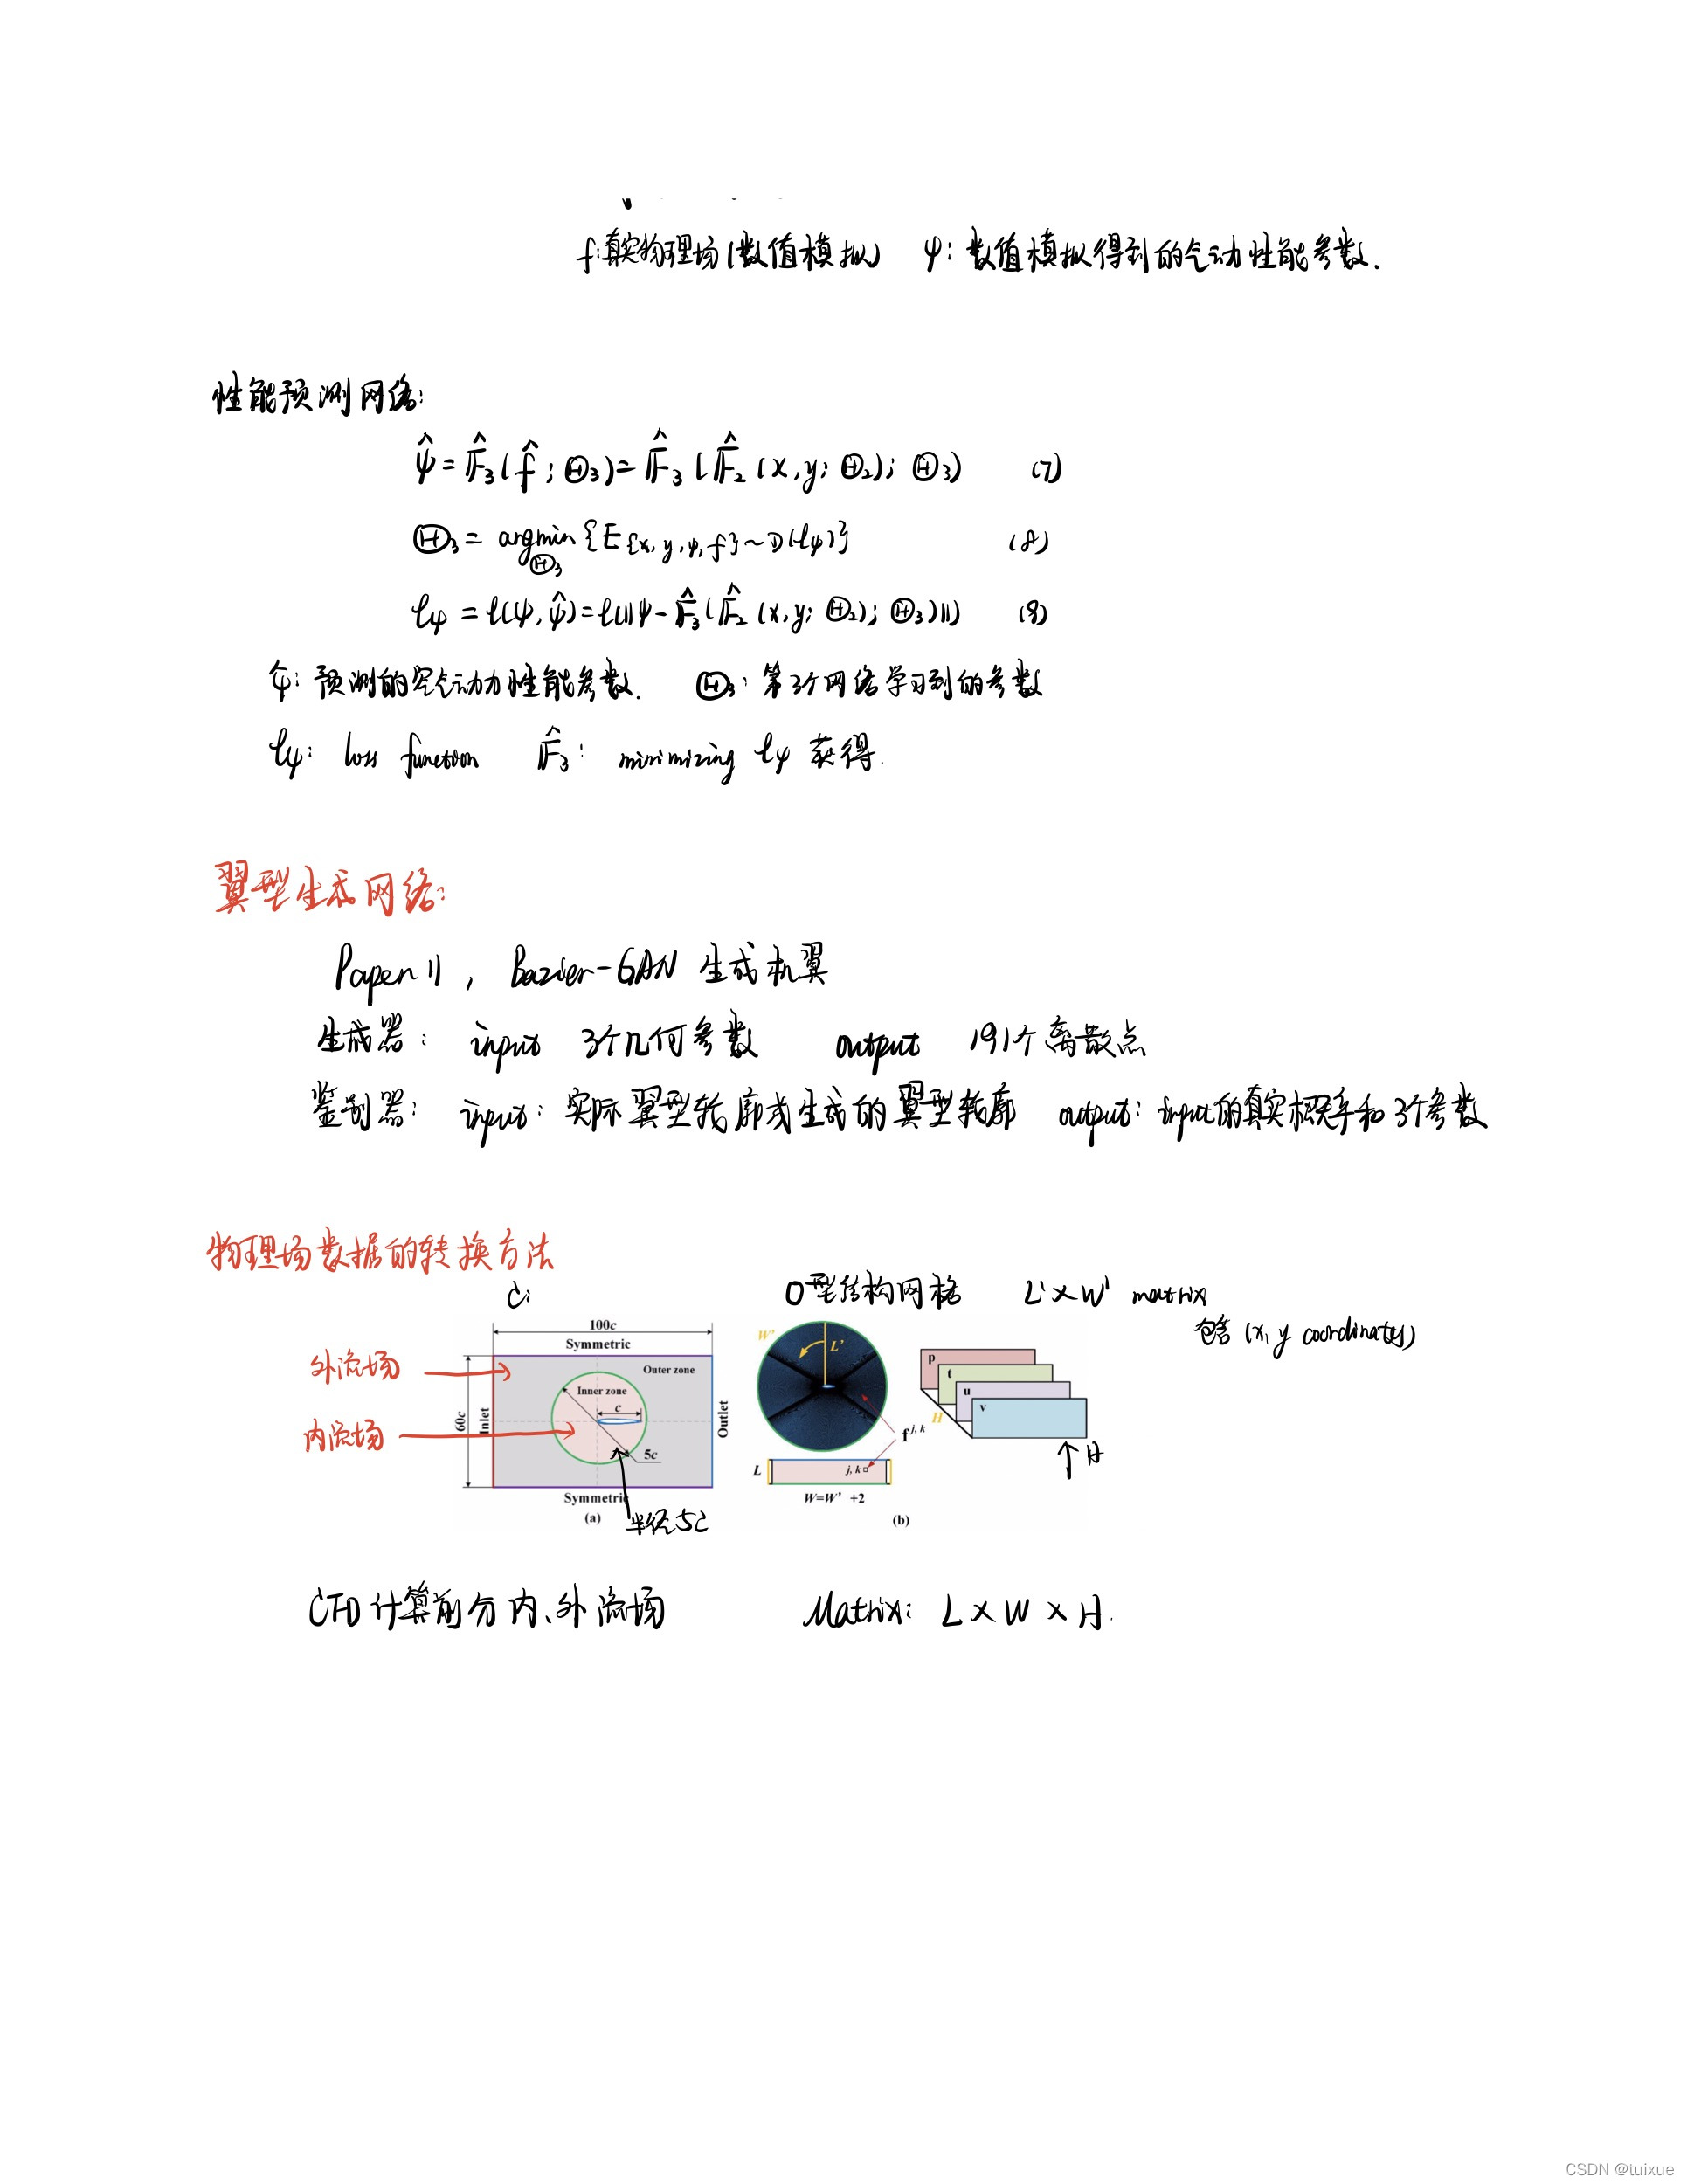 f:真实物理场(数值模拟) ψ:数值模拟得到的气动性能参数.
性能预测网络:
ψ̂ = F̂₃(f̂; Θ₃) = F̂₃(F̂₂(x,y; Θ₂); Θ₃) (7)
Θ₃ = argmin{E{x,y,ψ,f}~D(ℓψ)} (8)
Θ₃
ℓψ = ℓ(ψ,ψ̂) = ℓ(||ψ-F̂₃(F̂₂(x,y; Θ₂); Θ₃)||) (9)
ψ̂: 预测的空气动力性能参数. Θ₃: 第3个网络学习到的参数
ℓψ: loss function F̂₃: minimizing ℓψ 获得.
翼型生成网络:
Paper 11, Bazier-GAN 生成机翼
生成器: input 3个几何参数 output 191个离散点
鉴别器: input: 实际翼型轮廓或生成的翼型轮廓 output: input的真实概率和3个参数
物理场数据的转换方法
C: O型结构网格 L'×W' matrix
包含(x, y coordinates)
100c
Symmetric
外流场
内流场
Outer zone
Inner zone
c
60c
Inlet
Outlet
5c
Symmetric
(a)
半径5c
W'
L'
f^{j, k}
L
j, k
W=W' +2
p
t
u
v
H
↑H
(b)
CFD计算前分内、外流场 Matrix: L×W×H.
CSDN @tuixue